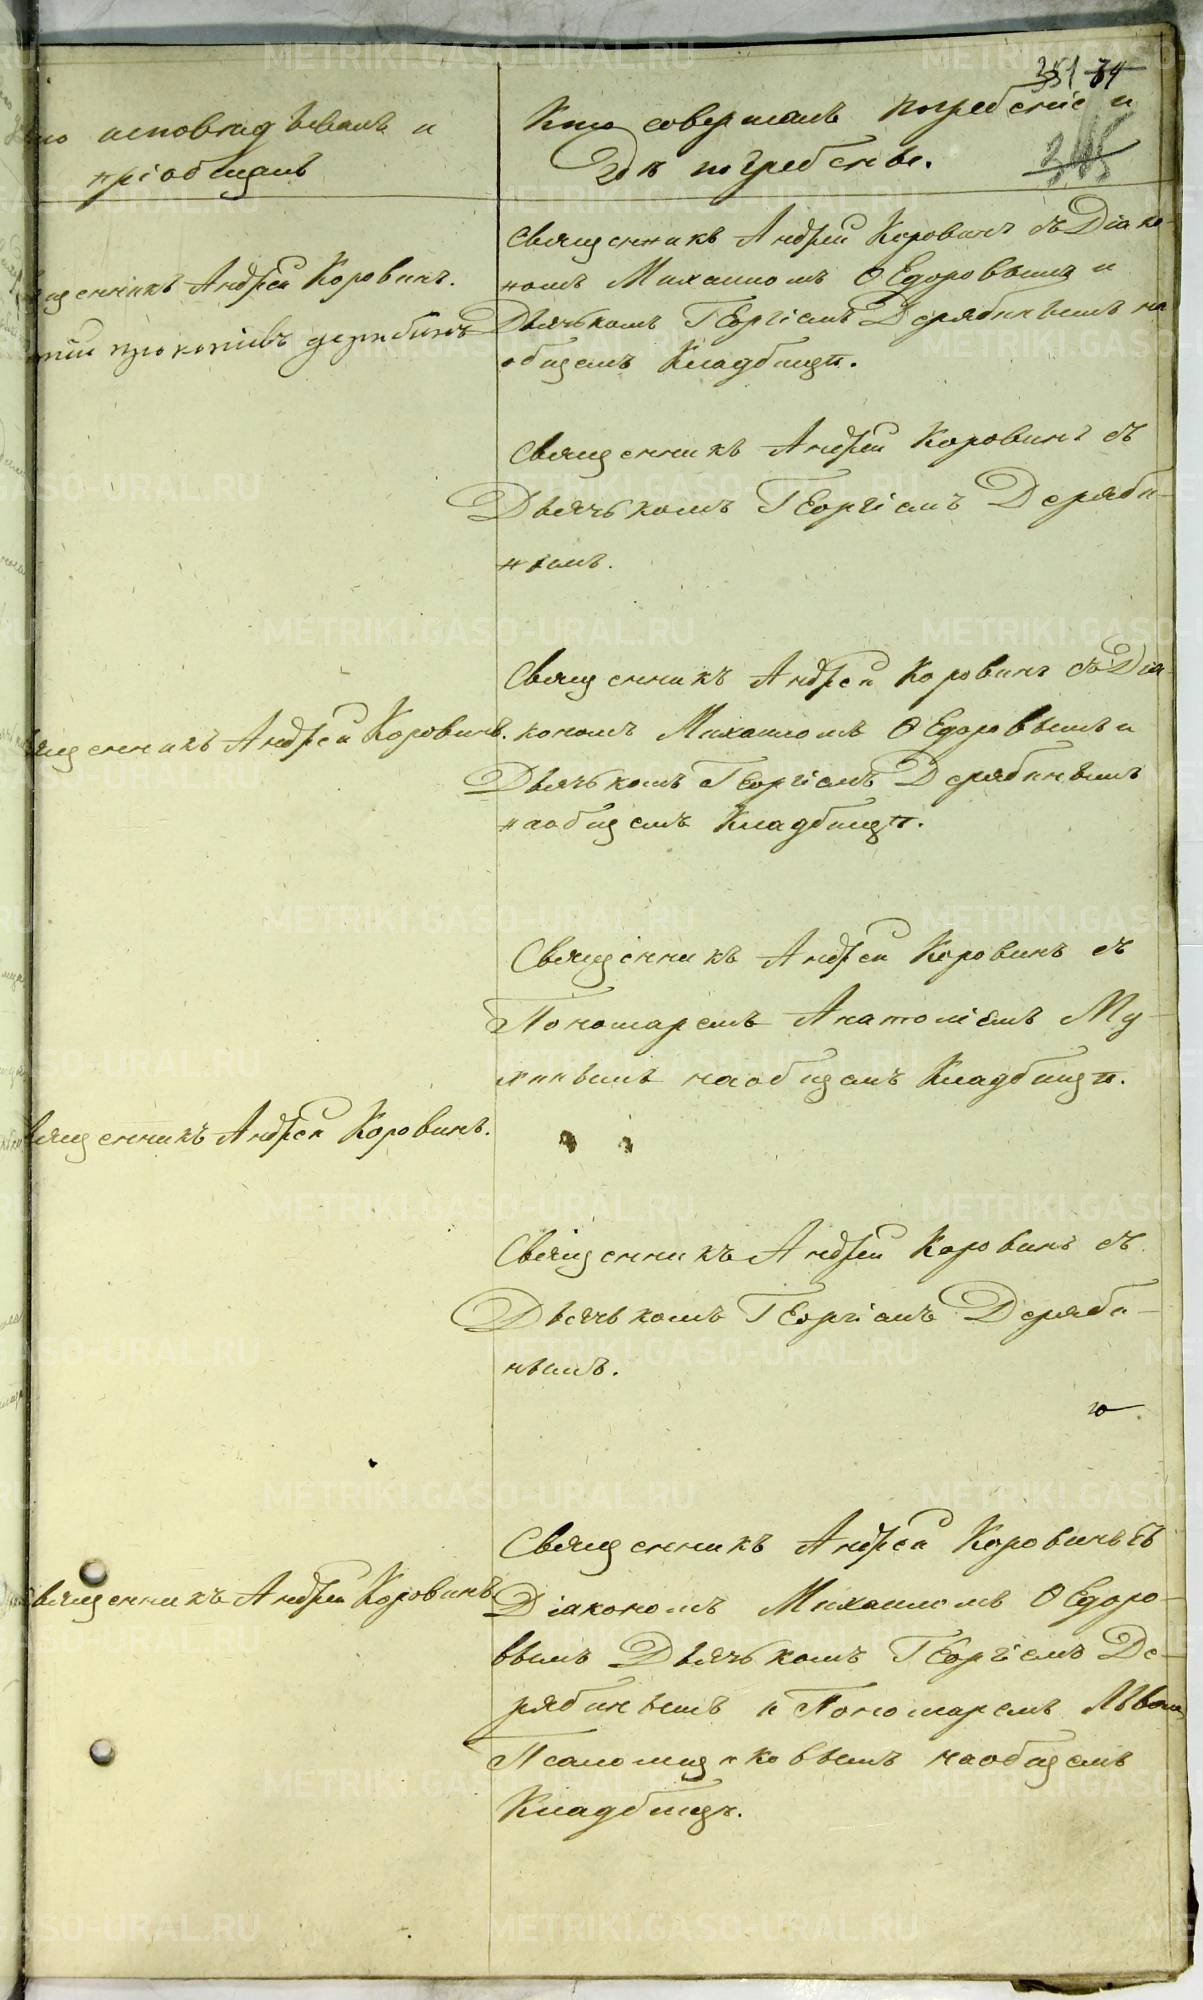 351 34
345
Кто исповѣдывалъ и
пріобщалъ
Кто совершалъ погребеніе и
гдѣ погребены.
Священникъ Андрей Коровинъ съ Діако-
номъ Михаиломъ Ѳедоровымъ и
Дьячькомъ Георгіемъ Дерябинымъ на
общемъ Кладбищѣ.
щенникъ Андрей Коровинъ.
Священникъ Андрей Коровинъ съ
Дьячькомъ Георгіемъ Деряби-
нымъ.
Священникъ Андрей Коровинъ съ Діа-
кономъ Михаиломъ Ѳедоровымъ и
Дьячькомъ Георгіемъ Дерябинымъ
на общемъ Кладбищѣ.
вященникъ Андрей Коровинъ.
Священникъ Андрей Коровинъ съ
Пономаремъ Анатоліемъ Му-
хинымъ на общемъ Кладбищѣ.
вященникъ Андрей Коровинъ.
Священникъ Андрей Коровинъ съ
Дьячькомъ Георгіемъ Деряби-
нымъ.
Священникъ Андрей Коровинъ съ
Діакономъ Михаиломъ Ѳедоро-
вымъ Дьячькомъ Георгіемъ Де-
рябинымъ и Пономаремъ
Псаломщиковымъ на общемъ
Кладбищѣ.
вященникъ Андрей Коровинъ
METRIKI.GASO-URAL.RU